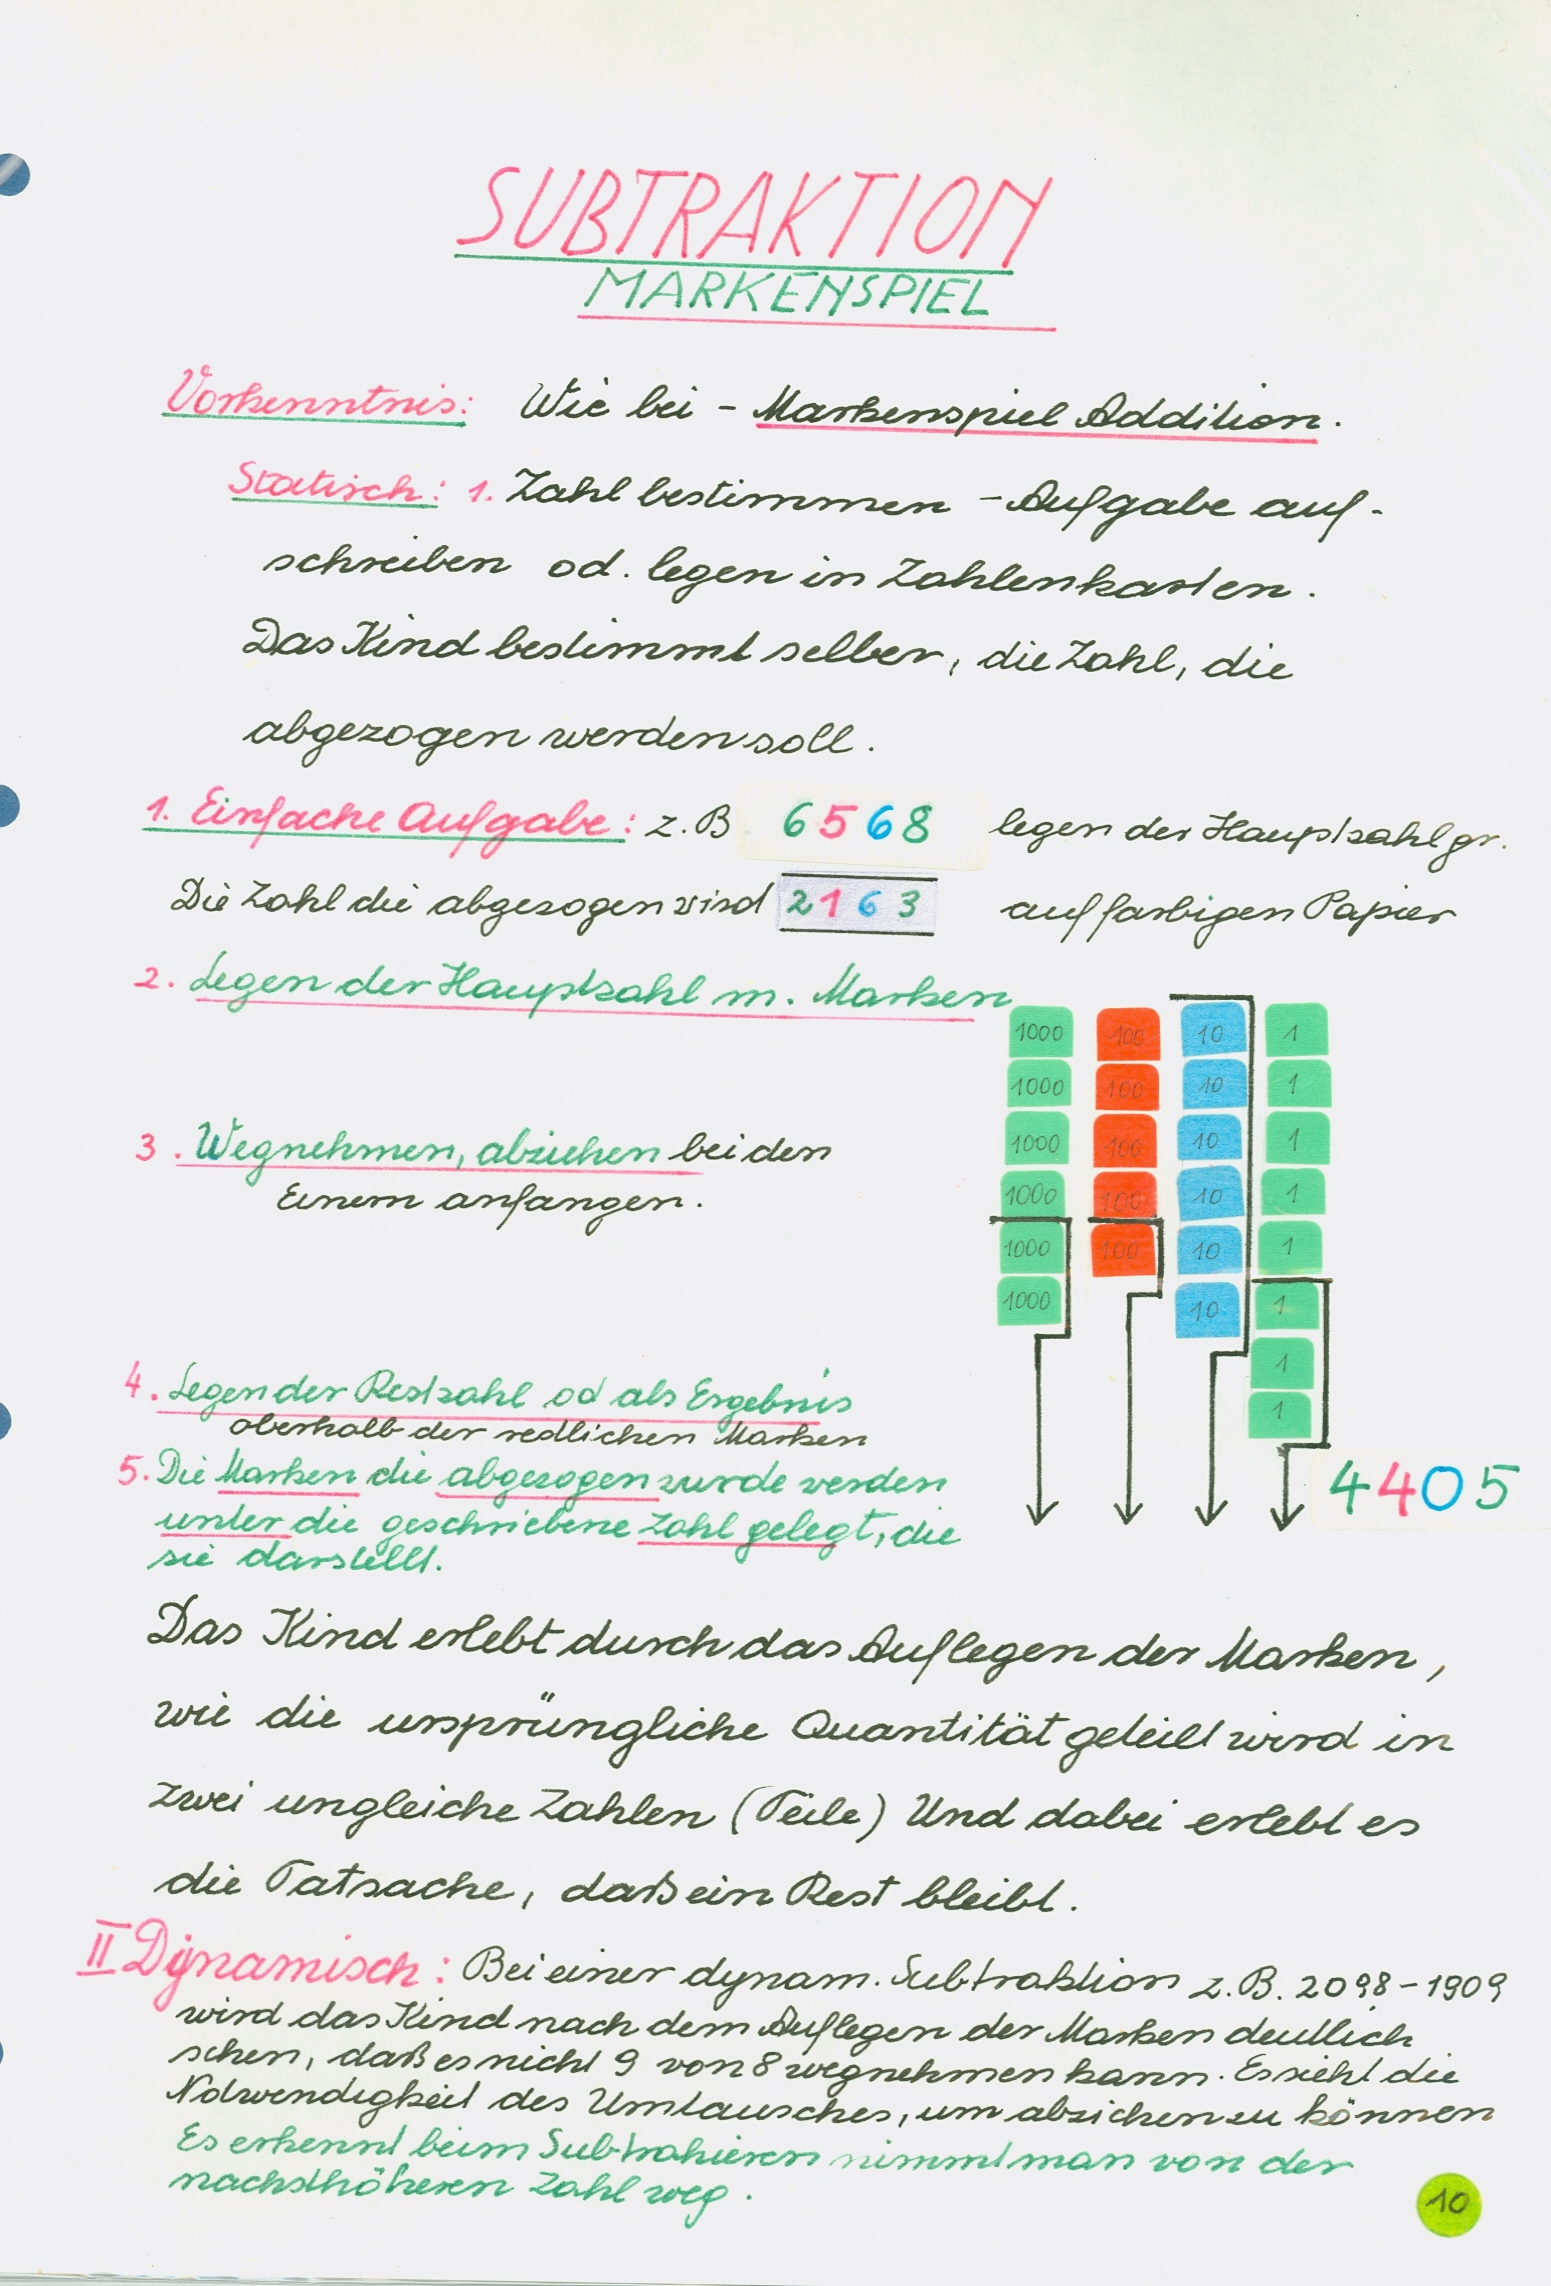 SUBTRAKTION
MARKENSPIEL
Vorkenntnis: Wie bei - Markenspiel Addition.
Statisch: 1. Zahl bestimmen - Aufgabe auf-
schreiben od. legen in Zahlenkarten.
Das Kind bestimmt selber, die Zahl, die
abgezogen werden soll.
1. Einfache Aufgabe: z.B 6568 legen der Hauptzahl gr.
Die Zahl die abgezogen wird 2163 auf farbigen Papier
2. Legen der Hauptzahl m. Marken
1000 100 10 1
1000 100 10 1
1000 100 10 1
1000 100 10 1
1000 100 10 1
1000 10 1
1
1
3. Wegnehmen, abziehen bei den
Einern anfangen.
4. Legen der Restzahl od als Ergebnis
oberhalb der restlichen Marken
4405
5. Die Marken die abgezogen wurde werden
unter die geschriebene Zahl gelegt, die
sie darstellt.
Das Kind erlebt durch das Auflegen der Marken,
wie die ursprüngliche Quantität geteilt wird in
zwei ungleiche Zahlen (Teile) Und dabei erlebt es
die Tatsache, daß ein Rest bleibt.
II Dynamisch: Bei einer dynam. Subtraktion z.B. 2098-1909
wird das Kind nach dem Auflegen der Marken deutlich
sehen, daß es nicht 9 von 8 wegnehmen kann. Es sieht die
Notwendigkeit des Umtausches, um abziehen zu können
Es erkennt beim Subtrahieren nimmt man von der
nächsthöheren Zahl weg.
10